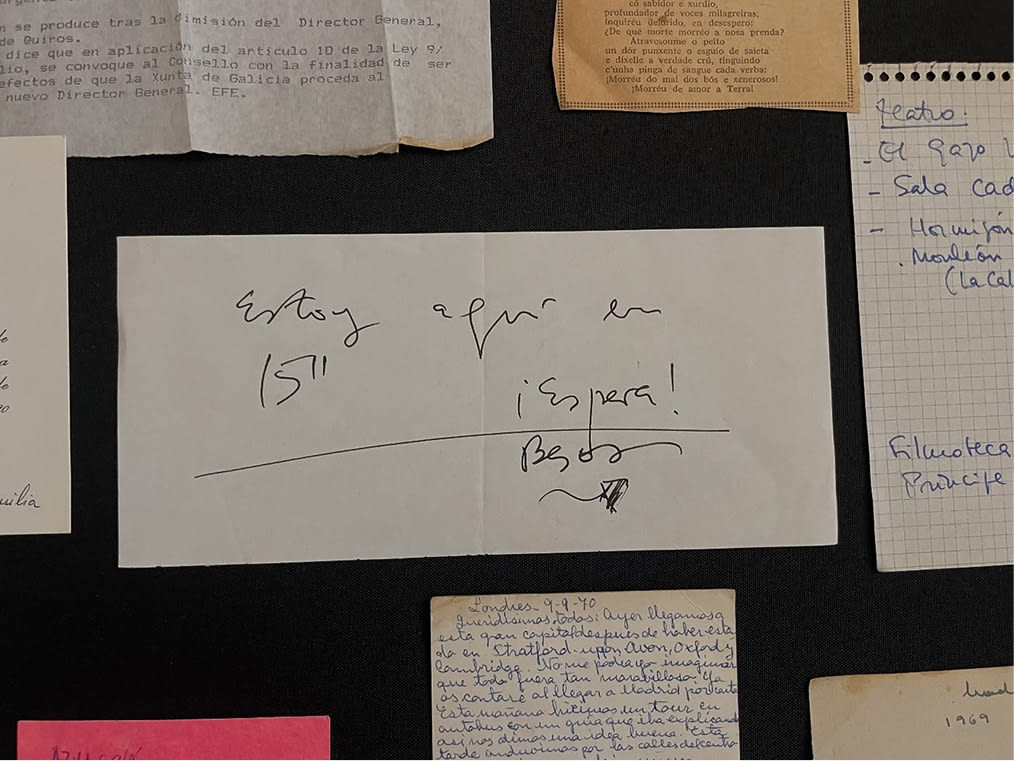 n se produce tras la dimisión del Director General,
de Quiros.
dice que en aplicación del artículo 10 de la Ley 9/
lio, se convoque al Consello con la finalidad de ser
efectos de que la Xunta de Galicia proceda al
nuevo Director General. EFE.
có sabidor e xurdio,
profundador de voces milagreiras;
inquiréu deforido, en desespero:
¿De qué morte morréo a nosa prenda?
Atravesoume o peito
un dór punxente o esguio de saieta
e dixelle a verdade crú, tinguindo
c'unha pinga de sangue cada verba:
¡Morréu do mal dos bós e xenerosos!
¡Morréu de amor a Terra!
Teatro.
- El Gazo
- Sala Cad
- Hormigón
. Monleón
(La Cal
Filmoteca
Príncipe
Estoy aquí en
15"
¡Espera!
Besos
uilia
Londres- 9-9-70
Queridísimos todos: Ayer llegamos a
esta gran capital después de haber esta
do en Stratford-upon-Avon, Oxford y
Cambridge. No me podía yo imaginar
que todo fuera tan maravilloso. Ya
os contaré al llegar a Madrid por carta
Esta mañana hicimos un tour en
autobus con un guía que iba explicando
así nos dimos una idea buena. Esta
tarde anduvimos por las calles del centro
Mad
1969